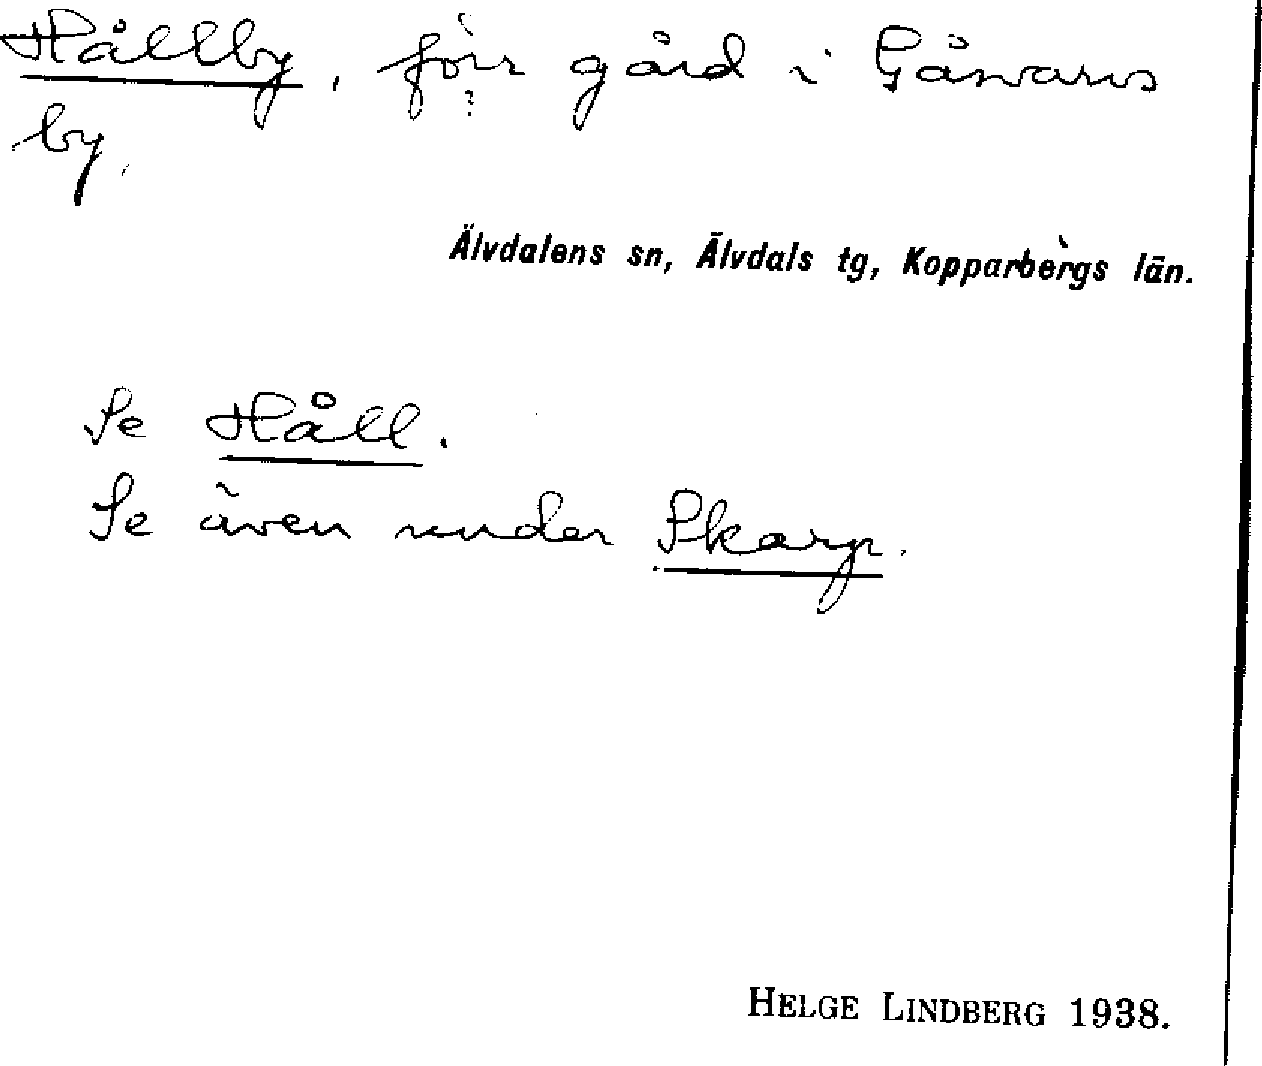 Hållby, förr gård i Gåsvarvs
?
by.
Älvdalens sn, Älvdals tg, Kopparbergs län.
Se Håll.
Se även under Skarp.
HELGE LINDBERG 1938.